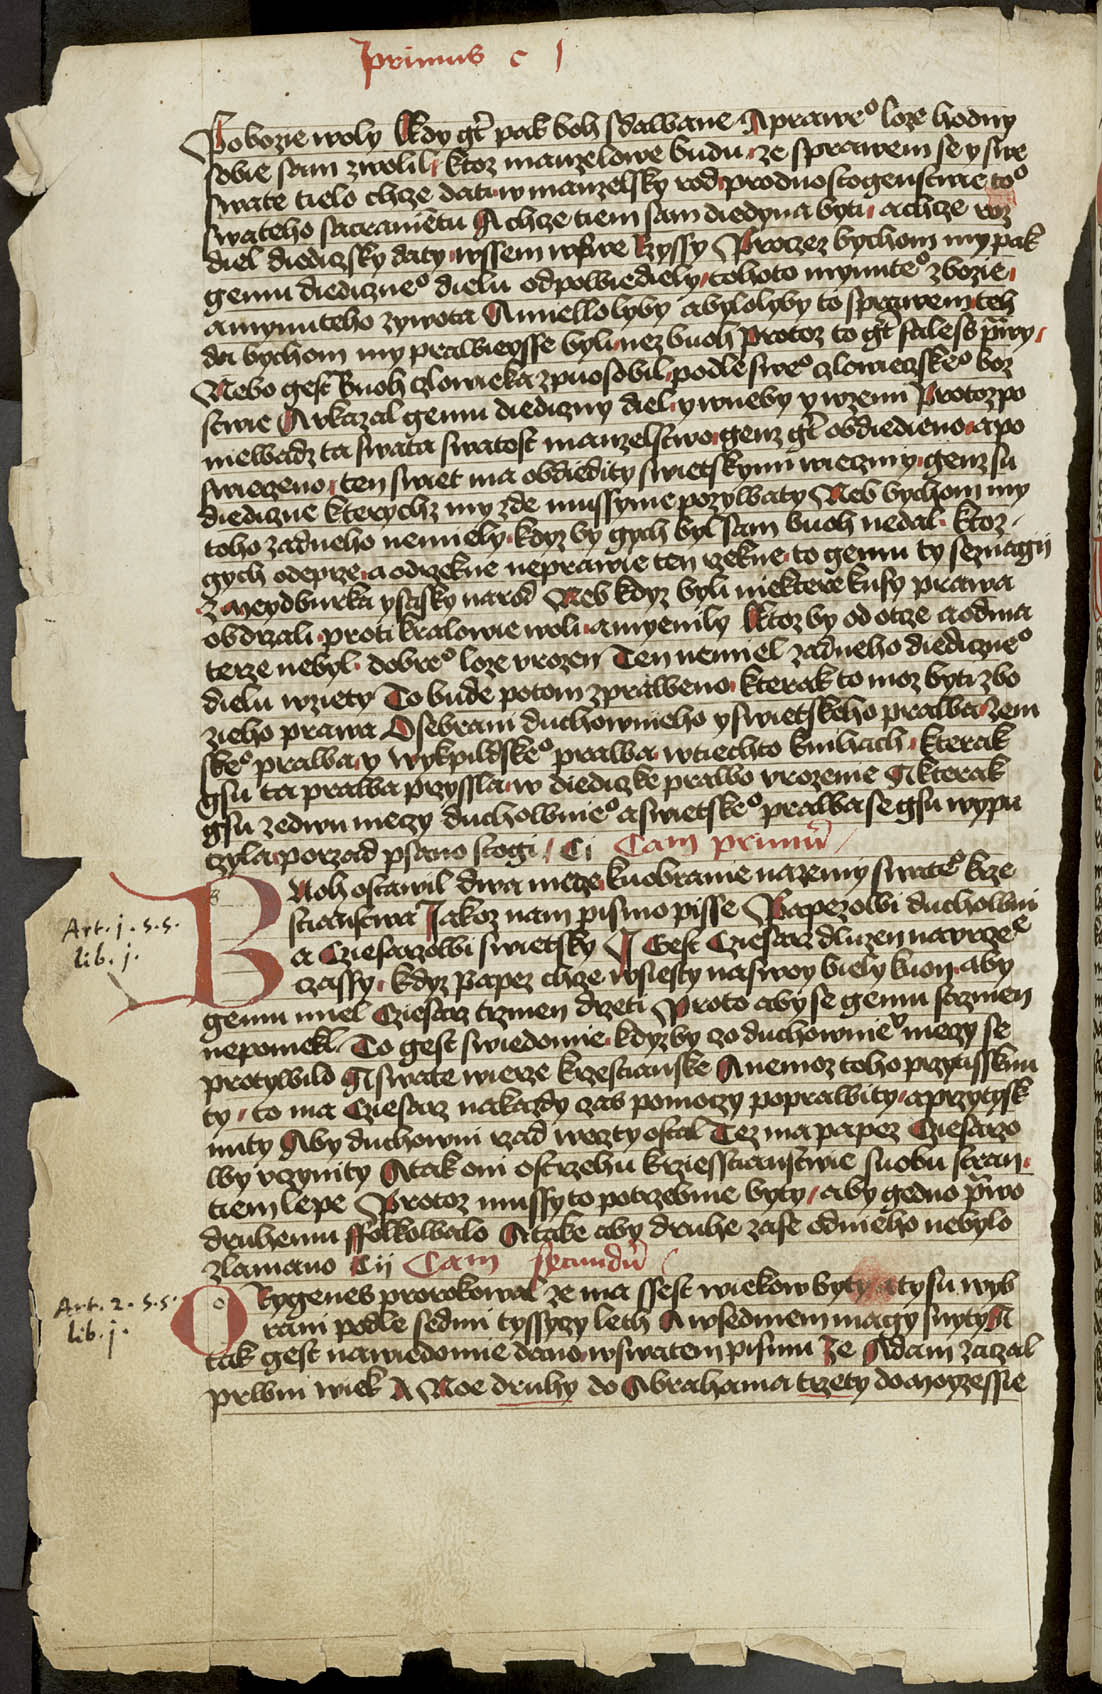 primus c j
Pobozie woly Kdy gt pak boh sdawane A prawe° loze hodny
sobie sam zwolil ktoz manzelowe budu ze sprawem se y swe
swate tielo chze dati w manzelsky rod prodnostogenstwie to°
swateho sacramētu A chze tiem sam diedyna byti achze roz
diel diediczsky daty wssem w swe Rzyssy Proczez bychom my pak
gemu diediczne° dielu odpowiediely tohoto mynute° zbozie
amynuteho zywota Anniellolyby abylolyby to sprawem teh
da bychom my prawieysse byli nez buoh Protoz to gt faless prwy
Nebo gest Buoh czlowieka zpuosobil podle swe° czlowieczske° boz
stwie A vkazal gemu diediczny diel y w neby y w zemi Protoz po
niewadz ta swata swatost manzelstwo genz gt obdiedieno a po
swieczeno ten swiet ma obdiedity swietskymi wieczmy genz su
diediczne kterychz my zde mussyme pozywaty Neb bychom my
toho zadneho nemiely kdyz by gych byl sam buoh nedal ktoz
gych odeprze a odrzekne neprawie ten rzekne to gemu ty seznagij
z meydburka y saský narod Neb kdyz byli niektere kusy prawa
obdrzali proti kralowie woli amyenily Ktoz by od otcze a od ma
terze nebyl dobre° loze vrozen Ten nemiel zadneho diediczne°
dielu wziety To bude potom zpraweno kterak to moz byti z bo
zieho prawa O sebrani duchownieho y swietskeho prawa zem
ske° prawa y wykpildske° prawa w tiechto knihach kterak
gsu ta prawa przyssla w diediczke prawo vrozenie A kterak
gsu ze dwu meczy duchownie° a swietske° prawa se gsu wypu
czyla porzad psano stogi Ci Cam primū
Buoh ostawil dwa mecze kuobranie na zemy swate° krze
stianstwa Jakoz nam pismo pisse Papezowi duchowni
a Cziesarzowi swietsky J Gest Cziesarz dluzen na vrcze
czassy kdyz Papez chze wsiesty na swoy biely kuon aby
gemu miel Cziesarz trzmen drzeti Proto aby se gemu strmen
nepomekl To gest swiedomie kdyzby czo duchownie° meczy se
protywilo A swate wierze krzestianske A nemoz toho przytissknu
ty to ma Cziesarz na kazdy czas pomoczy poprawity a przytysk
nuty Aby duchowni rzad w czty ostal Tez ma papez Cziesarzo
wy vczynity A tak oni ostrzehu krziesstianstwie s uobu stran
tiem lepe Protoz mussy to potrzebnie byty aby gedno prwo
druhemu ffolkowalo A take aby druhe zase od nieho nebylo
zlamano Cij Cam secundū
ORygenes prorokowal ze ma ssest wiekow byty a ty su wyb
rani podle sedmi tyssyczy leth A w sedmem magy snyty A
tak gest na wiedomie dano w swatem pismu Ze Adam zaczal
prwni wiek A Noe druhy do Abrahama trzety do Moyzessie
Art. j. s. s.
lib. j.
Art. 2. s. s.
lib. j.